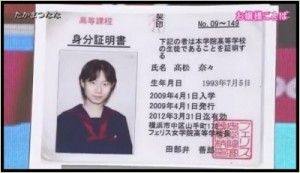 たかまつなな
お嬢様ことば
高等課程
身分証明書
契印
No.09〜149
下記の者は本学院高等学校
の生徒であることを証明する
氏名 髙松 奈々
生年月日 1993年7月5日
2009年4月1日入学
2009年4月1日発行
2012年3月31日迄有効
横浜市中区山手町178
フェリス女学院高等学校長
田部井 善郎